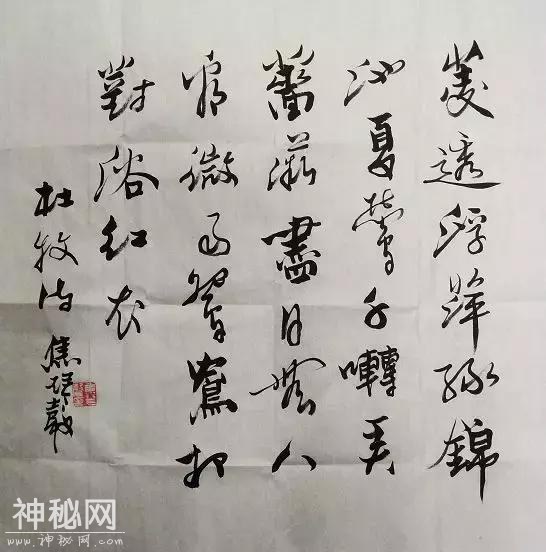 菱透浮萍緑錦
池夏鶯千囀弄
薔薇盡日無人
看微雨鴛鴦相
對浴红衣
杜牧诗 焦
神秘网
www.shenmiw.com